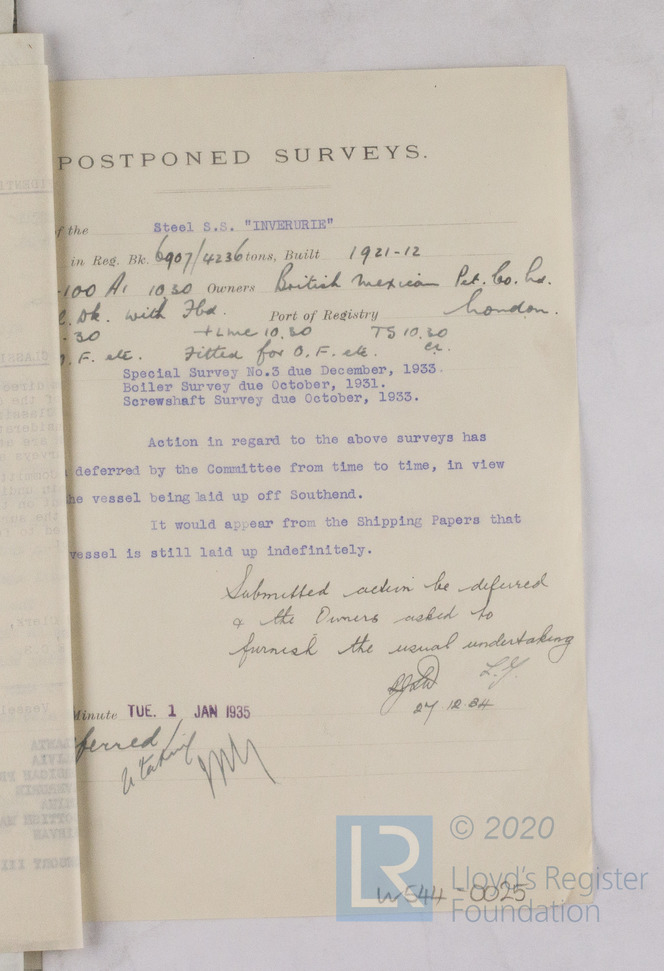 POSTPONED SURVEYS.
of the Steel S.S. "INVERURIE"
in Reg. Bk. 6907/4236 tons, Built 1921-12
-100 A1 10.30 Owners British Mexican Pet. Co. Ld.
Dk. with Fbd. Port of Registry London.
.30 +LMC 10.30 TS 10.30
O.F. etc. Fitted for O.F. etc. CL.
Special Survey No.3 due December, 1933.
Boiler Survey due October, 1931.
Screwshaft Survey due October, 1933.
Action in regard to the above surveys has
deferred by the Committee from time to time, in view
the vessel being laid up off Southend.
It would appear from the Shipping Papers that
vessel is still laid up indefinitely.
Submitted action be deferred
& the Owners asked to
furnish the usual undertaking
27.12.34
Minute TUE. 1 JAN 1935
ferred
W544-0025
© 2020
LR
Lloyd's Register
Foundation